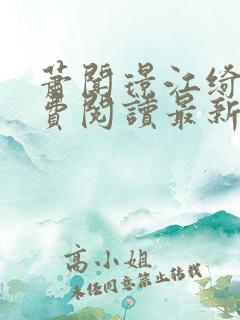 萧闻璟江绮
费阅读最新
高小姐
未经同意禁止转载